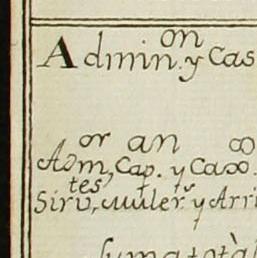 Admin.on y Cas
Adm,or Cap.an y Caxo.
Sirv,tes Muler.s y Arri
suma total